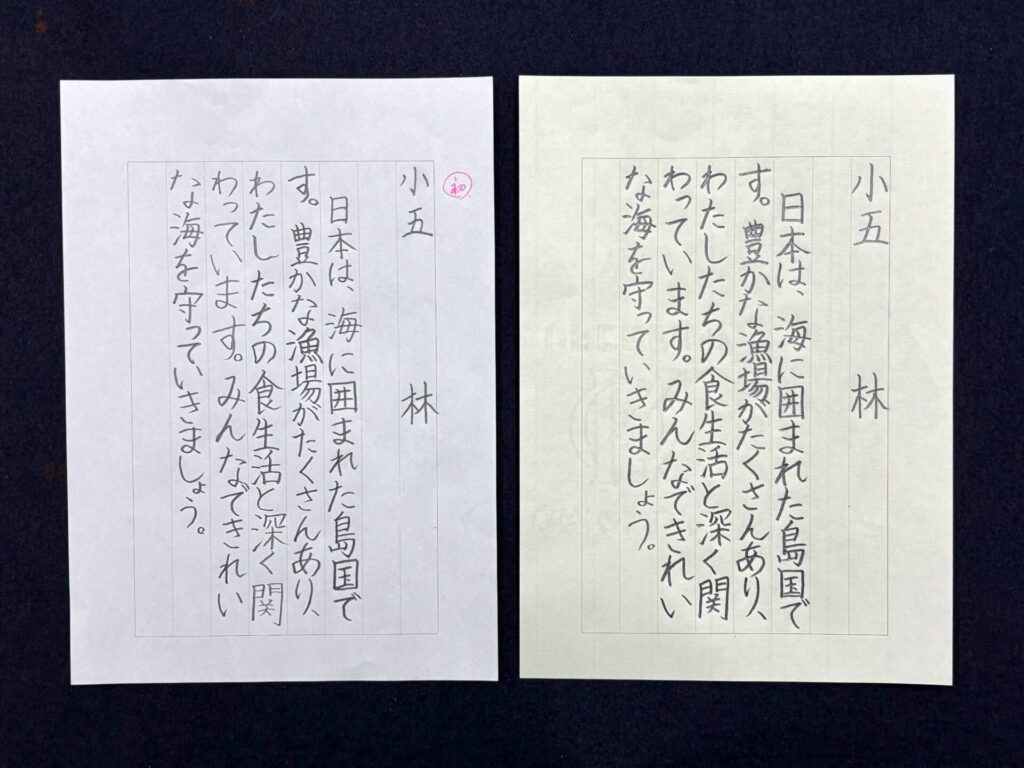 小五　林
日本は、海に囲まれた島国で
す。豊かな漁場がたくさんあり、
わたしたちの食生活と深く関
わっています。みんなできれい
な海を守っていきましょう。
初
小五　林
日本は、海に囲まれた島国で
す。豊かな漁場がたくさんあり、
わたしたちの食生活と深く関
わっています。みんなできれい
な海を守っていきましょう。